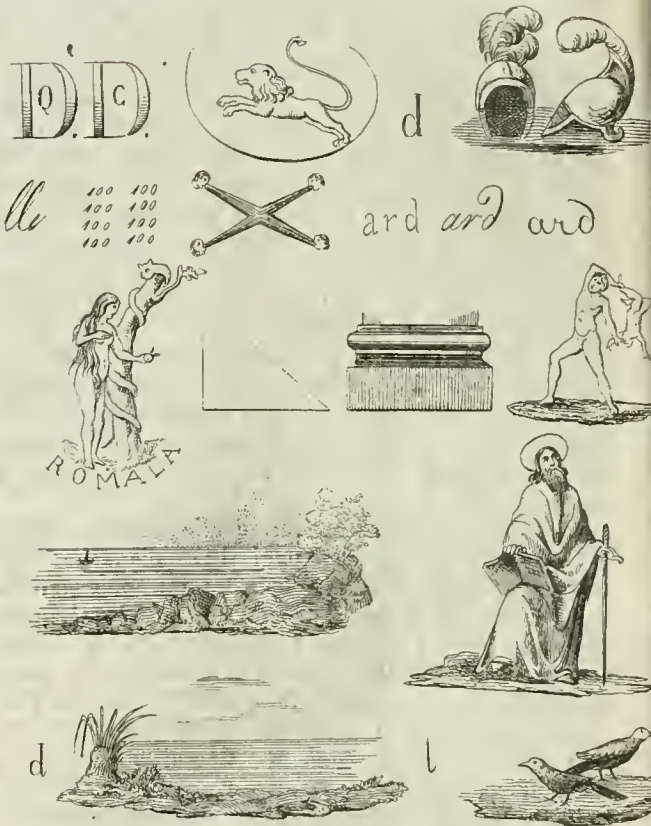 D.'D.
Q C
d
lle 100 100
100 100
100 100
100 100
ard ard ard
ROMALA
d l